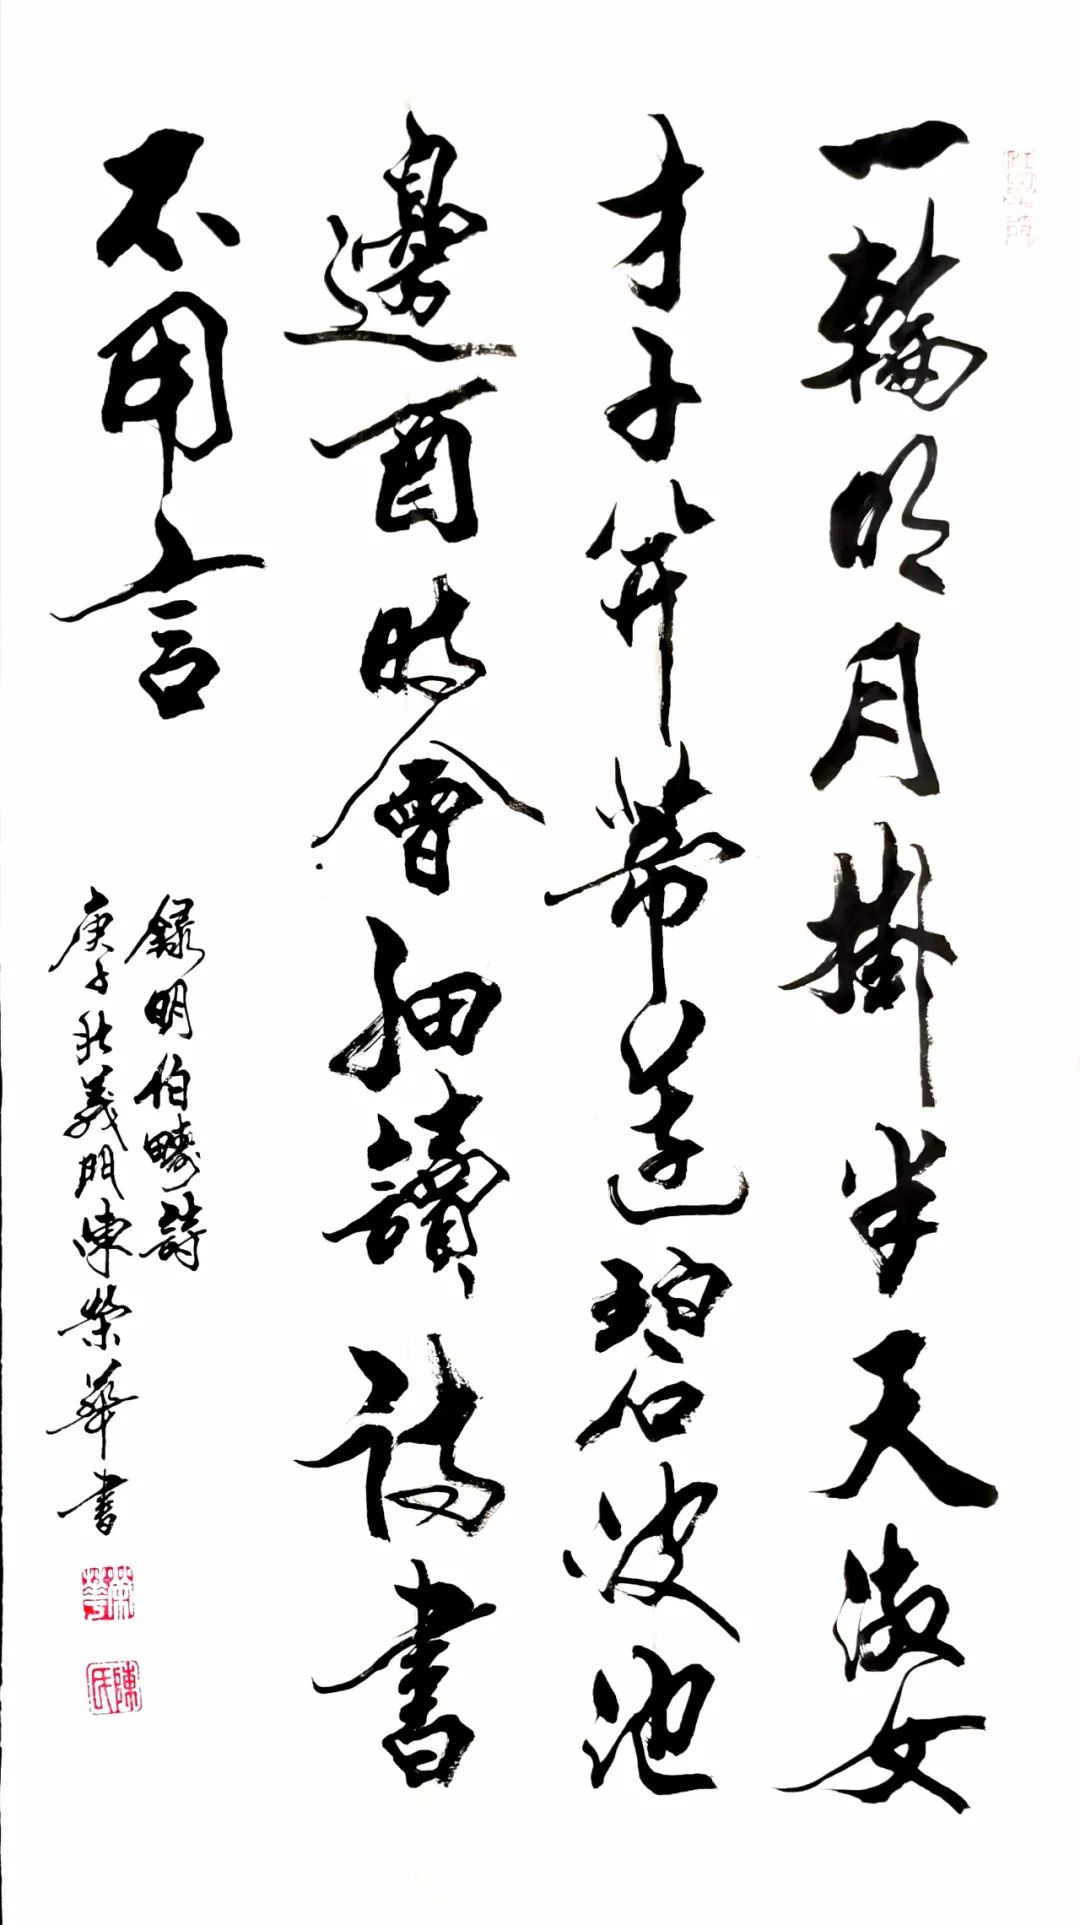 一輪明月掛半天淑女
才子并蒂蓮碧波池
邊酉時會細讀詩書
不用言
錄明伯疇詩
庚子秋義門陳榮華書
榮華
陳氏